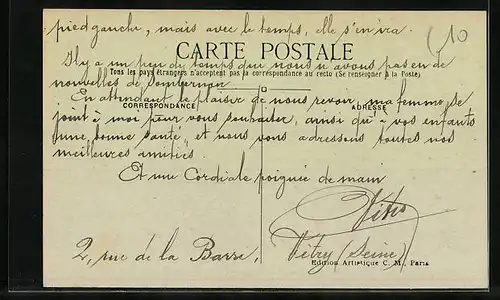 pied gauche, mais avec le temps, elle s'en ira.
(10
CARTE POSTALE
Il y a un peu de temps que nous n'avons pas eu de
Tous les pays étrangers n'acceptent pas la correspondance au recto (Se renseigner à la Poste)
nouvelles de
En attendant le plaisir de nous revoir, ma femme se
CORRESPONDANCE
ADRESSE
joint à moi pour vous souhaiter, ainsi qu'à vos enfants
une bonne santé, et nous vous adressons toutes nos
meilleures amitiés
Et une Cordiale poignée de main
2, rue de la Barre,
Vitry (Seine)
Edition Artistique C. M., Paris